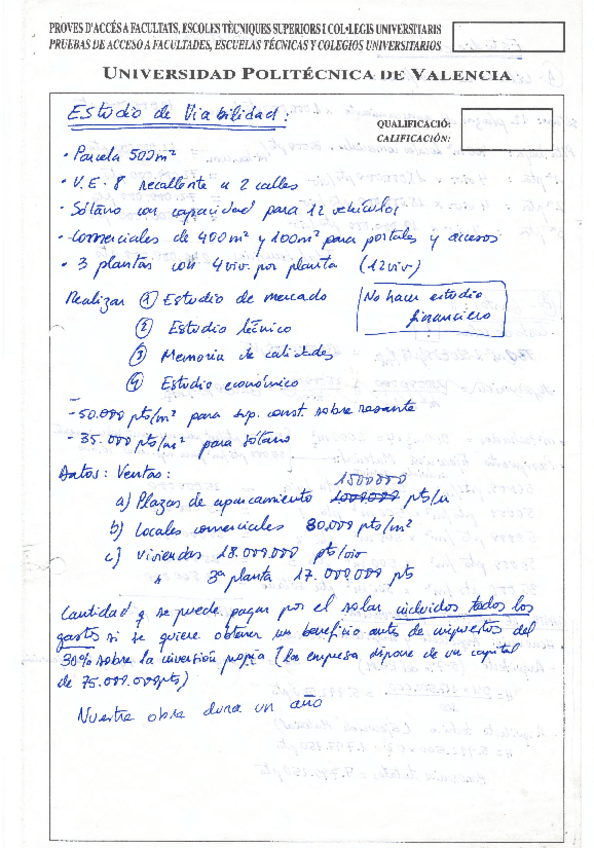 PROVES D'ACCÉS A FACULTATS, ESCOLES TÈCNIQUES SUPERIORS I COL·LEGIS UNIVERSITARIS
PRUEBAS DE ACCESO A FACULTADES, ESCUELAS TÉCNICAS Y COLEGIOS UNIVERSITARIOS
UNIVERSIDAD POLITÉCNICA DE VALENCIA
Estudio de Viabilidad:
QUALIFICACIÓ:
CALIFICACIÓN:
· Parcela 500m²
· V.E-8 recallente a 2 calles
· Sótano con capacidad para 12 vehículos
· Comerciales de 400m² y 100m² para portales y accesos
· 3 plantas con 4 viv. por planta (12 viv)
Realizar ① Estudio de mercado
② Estudio técnico
③ Memoria de calidades
④ Estudio económico
No hacer estudio
financiero
- 50.000 pts/m² para sup. const. sobre rasante
- 35.000 pts/m² para sótano
Datos: Ventas:
1500000
a) Plazas de aparcamiento 1000000 pts/u
b) Locales comerciales 80.000 pts/m²
c) Viviendas 18.000.000 pts/viv
3ª planta 17.000.000 pts
Cantidad q se puede pagar por el solar incluidos todos los
gastos si se quiere obtener un beneficio antes de impuestos del
30% sobre la inversión propia (la empresa dispone de un capital
de 75.000.000pts)
Nuestra obra dura un año